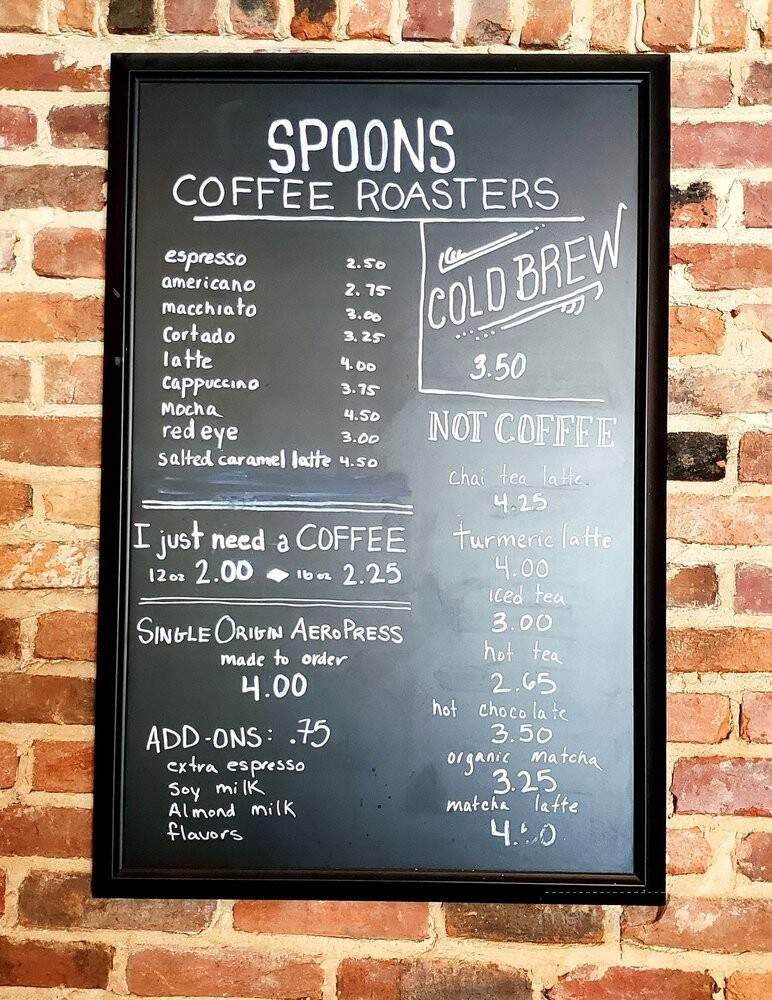 SPOONS
COFFEE ROASTERS
espresso 2.50
americano 2.75
macchiato 3.00
Cortado 3.25
latte 4.00
cappuccino 3.75
mocha 4.50
red eye 3.00
salted caramel latte 4.50
COLD BREW
3.50
I just need a COFFEE
12oz 2.00 16oz 2.25
SINGLE ORIGIN AEROPRESS
made to order
4.00
ADD-ONS: .75
extra espresso
Soy milk
Almond milk
flavors
NOT COFFEE
chai tea latte
4.25
turmeric latte
4.00
iced tea
3.00
hot tea
2.65
hot chocolate
3.50
organic matcha
3.25
matcha latte